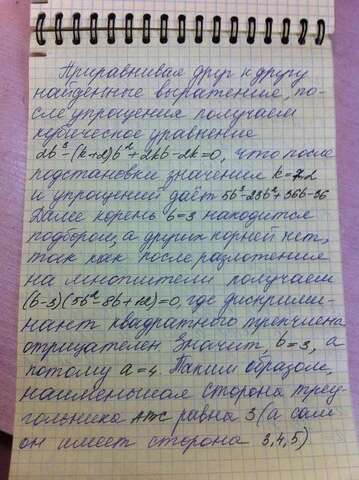 Приравнивая друг к другу
найденные выражения, по-
сле упрощения получаем
кубическое уравнение
2b³-(k+2)b²+2kb-2k=0, что после
подстановки значения k=7,2
и упрощений даёт 5b³-23b²+36b-36
Далее корень b=3 находится
подбором, а других корней нет,
так как после разложения
на множители получаем
(b-3)(5b²-8b+12)=0, где дискрими-
нант квадратного трехчлена
отрицателен Значит b=3, а
потому a=4. Таким образом,
наименьшая сторона треу-
гольника АТС равна 3 (а сам
он имеет сторона 3,4,5)